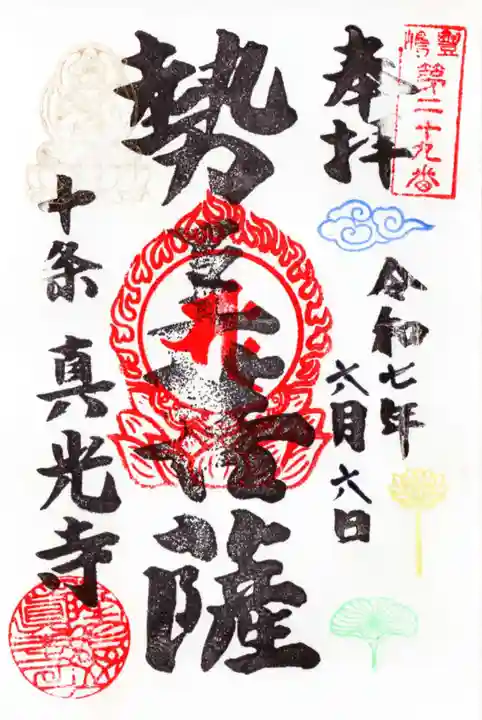 豊島第二十九番
奉拝
令和七年
六月六日
勢至菩薩
十条 真光寺